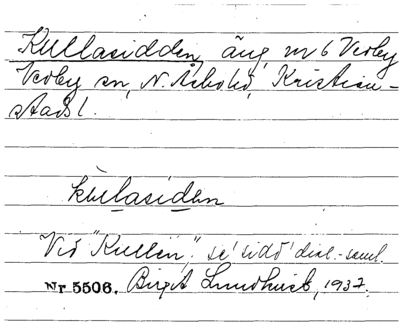 Kullasidden, äng, nr 6 Verby
Verby sn, N. Åsbo hd, Kristian-
stads l.
kullasiden
Vid "Kullen"; se' sidd' dial.-saml.
Nr 5506. Birgit Lundkvist, 1937.